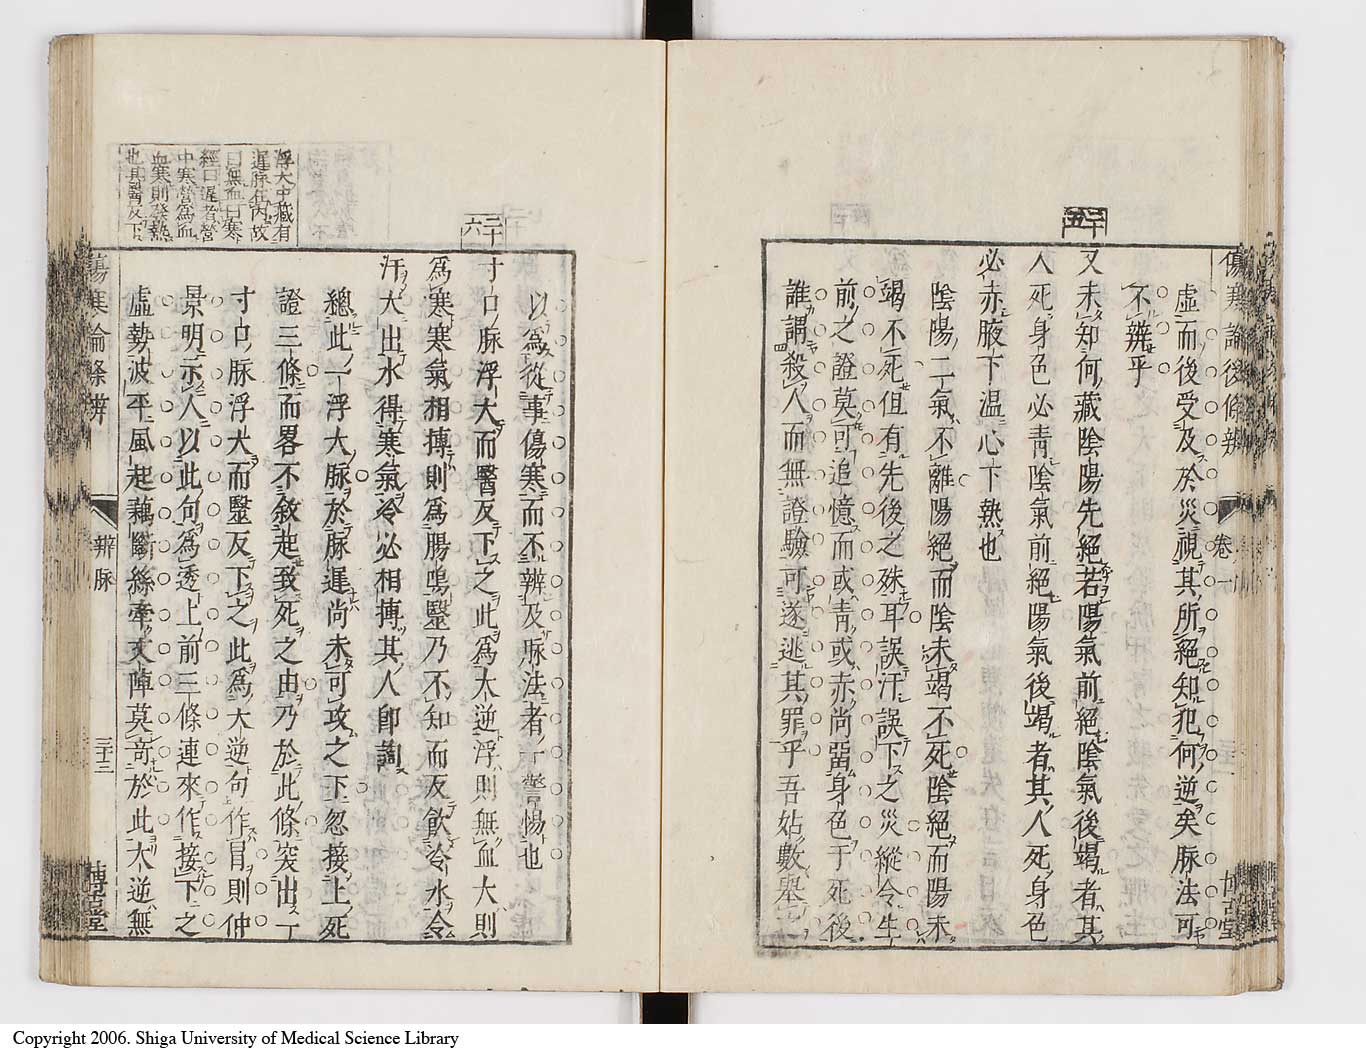 傷寒論後條辨
卷一
博古堂
虛而後受及於災視其所絕知犯何逆矣脉法可
不辨乎
二十五
又未知何藏陰陽先絕若陽氣前絕陰氣後竭者其
人死身色必青陰氣前絕陽氣後竭者其人死身色
必赤腋下温心下熱也
陰陽二氣不離陽絕而陰未竭不死陰絕而陽未
竭不死但有先後之殊耳誤汗誤下之災縱令生
前之證莫可追憶而或青或赤尚留身色于死後
誰謂殺人而無證驗可遂逃其罪乎吾姑數舉之
以爲從事傷寒而不辨及脉法者警惕也
二十六
寸口脉浮大而醫反下之此爲大逆浮則無血大則
爲寒寒氣相搏則爲腸鳴醫乃不知而反飲冷水令
汗大出水得寒氣冷必相搏其人卽䭇
總此一浮大脉於脉遲尚未可攻之下忽接上死
證三條而畧不敘起致死之由乃於此條突出一
寸口脉浮大而醫反下之此爲大逆句作冒則仲
景明示人以此句爲透上前三條連來作接下之
虛勢波平風起藕斷絲牽文陣莫奇於此大逆無
浮大中藏有
遲脉在内故
曰無血曰寒
經曰遲者營
中寒營爲血
血寒則發熱
也其醫反下
傷寒論條辨
辨脉
三十三
博古堂
Copyright 2006. Shiga University of Medical Science Library